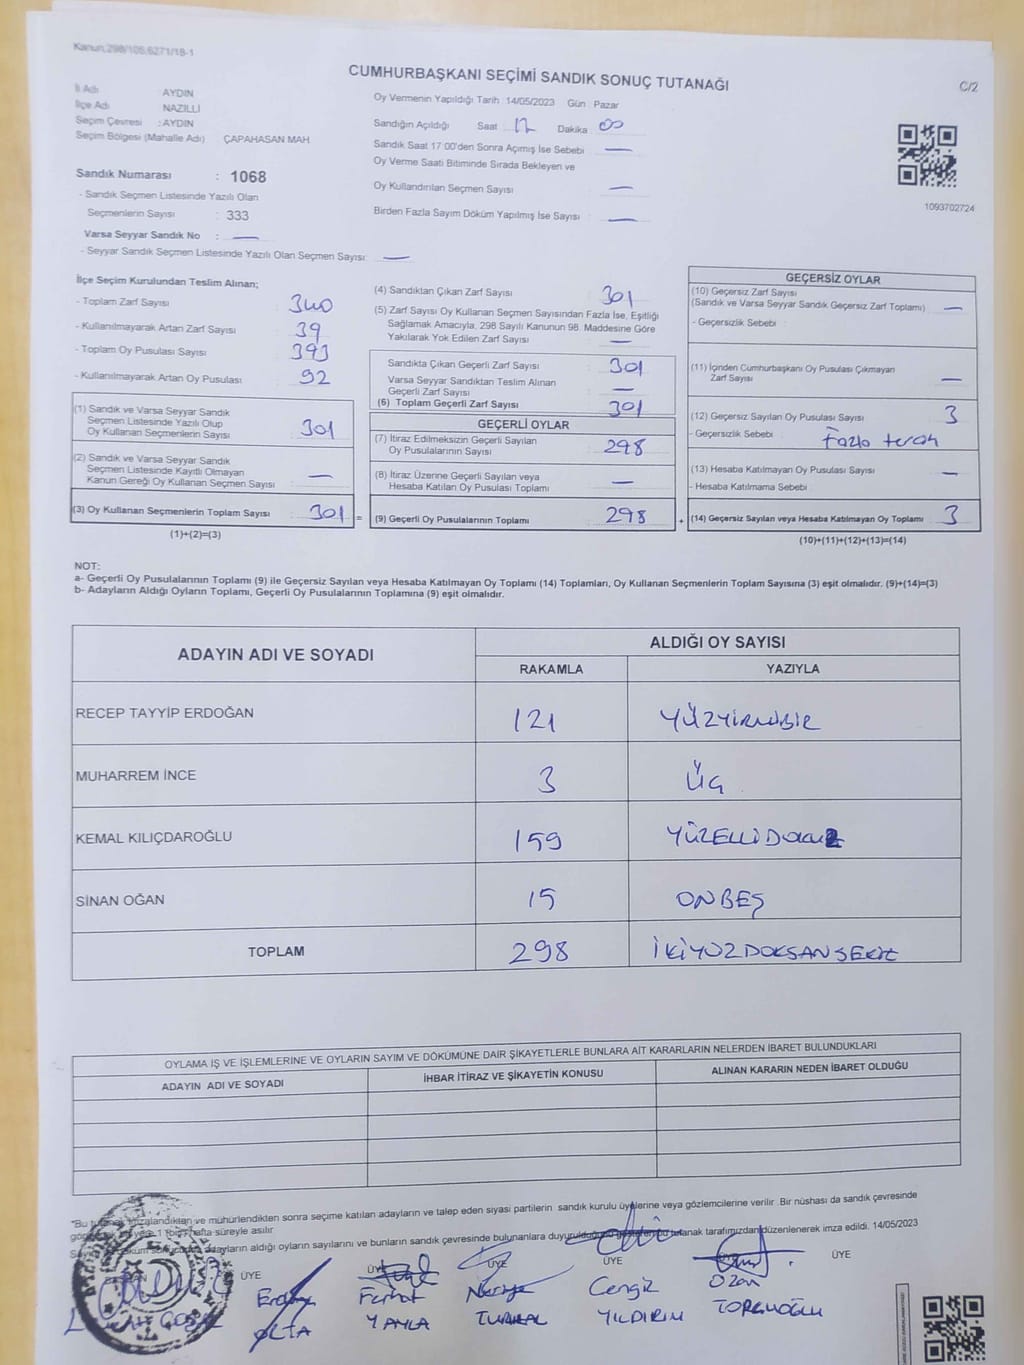 Kanun,298/105,6271/18-1
CUMHURBAŞKANI SEÇİMİ SANDIK SONUÇ TUTANAĞI
C/2
İl Adı : AYDIN
İlçe Adı NAZİLLİ
Seçim Çevresi : AYDIN
Seçim Bölgesi (Mahalle Adı) ÇAPAHASAN MAH
Sandık Numarası : 1068
- Sandık Seçmen Listesinde Yazılı Olan
Seçmenlerin Sayısı : 333
Varsa Seyyar Sandık No : —
- Seyyar Sandık Seçmen Listesinde Yazılı Olan Seçmen Sayısı: —
Oy Vermenin Yapıldığı Tarih : 14/05/2023 Gün : Pazar
Sandığın Açıldığı Saat Dakika 00
Sandık Saat 17:00'den Sonra Açımış İse Sebebi —
Oy Verme Saati Bitiminde Sırada Bekleyen ve
Oy Kullandırılan Seçmen Sayısı : —
Birden Fazla Sayım Döküm Yapılmış İse Sayısı : —
1093702724
İlçe Seçim Kurulundan Teslim Alınan;
- Toplam Zarf Sayısı : 340
- Kullanılmayarak Artan Zarf Sayısı : 39
- Toplam Oy Pusulası Sayısı : 393
- Kullanılmayarak Artan Oy Pusulası : 92
(1) Sandık ve Varsa Seyyar Sandık
Seçmen Listesinde Yazılı Olup
Oy Kullanan Seçmenlerin Sayısı : 301
(2) Sandık ve Varsa Seyyar Sandık
Seçmen Listesinde Kayıtlı Olmayan
Kanun Gereği Oy Kullanan Seçmen Sayısı : —
(3) Oy Kullanan Seçmenlerin Toplam Sayısı : 301 =
(1)+(2)=(3)
(4) Sandıktan Çıkan Zarf Sayısı : 301
(5) Zarf Sayısı Oy Kullanan Seçmen Sayısından Fazla İse, Eşitliği
Sağlamak Amacıyla, 298 Sayılı Kanunun 98. Maddesine Göre
Yakılarak Yok Edilen Zarf Sayısı : —
Sandıkta Çıkan Geçerli Zarf Sayısı : 301
Varsa Seyyar Sandıktan Teslim Alınan
Geçerli Zarf Sayısı : —
(6) Toplam Geçerli Zarf Sayısı : 301
GEÇERLİ OYLAR
(7) İtiraz Edilmeksizin Geçerli Sayılan
Oy Pusulalarının Sayısı : 298
(8) İtiraz Üzerine Geçerli Sayılan veya
Hesaba Katılan Oy Pusulası Toplamı : —
(9) Geçerli Oy Pusulalarının Toplamı : 298 +
GEÇERSİZ OYLAR
(10) Geçersiz Zarf Sayısı
(Sandık ve Varsa Seyyar Sandık Geçersiz Zarf Toplamı) : —
- Geçersizlik Sebebi :
(11) İçinden Cumhurbaşkanı Oy Pusulası Çıkmayan
Zarf Sayısı : —
(12) Geçersiz Sayılan Oy Pusulası Sayısı : 3
- Geçersizlik Sebebi : Fazla tercih
(13) Hesaba Katılmayan Oy Pusulası Sayısı : —
- Hesaba Katılmama Sebebi
(14) Geçersiz Sayılan veya Hesaba Katılmayan Oy Toplamı : 3
(10)+(11)+(12)+(13)=(14)
NOT:
a- Geçerli Oy Pusulalarının Toplamı (9) ile Geçersiz Sayılan veya Hesaba Katılmayan Oy Toplamı (14) Toplamları, Oy Kullanan Seçmenlerin Toplam Sayısına (3) eşit olmalıdır. (9)+(14)=(3)
b- Adayların Aldığı Oyların Toplamı, Geçerli Oy Pusulalarının Toplamına (9) eşit olmalıdır.
ADAYIN ADI VE SOYADI
ALDIĞI OY SAYISI
RAKAMLA YAZIYLA
RECEP TAYYİP ERDOĞAN 121 YÜZYİRMİBİR
MUHARREM İNCE 3 ÜÇ
KEMAL KILIÇDAROĞLU 159 YÜZELLİDOKUZ
SİNAN OĞAN 15 ONBEŞ
TOPLAM 298 İKİYÜZDOKSANSEKİZ
OYLAMA İŞ VE İŞLEMLERİNE VE OYLARIN SAYIM VE DÖKÜMÜNE DAİR ŞİKAYETLERLE BUNLARA AİT KARARLARIN NELERDEN İBARET BULUNDUKLARI
ADAYIN ADI VE SOYADI İHBAR İTİRAZ VE ŞİKAYETİN KONUSU ALINAN KARARIN NEDEN İBARET OLDUĞU
"Bu tutanak imzalandıktan ve mühürlendikten sonra seçime katılan adayların ve talep eden siyasi partilerin sandık kurulu üyelerine veya gözlemcilerine verilir .Bir nüshası da sandık çevresinde
1 (bir) hafta süreyle asılır
adayların aldığı oyların sayılarını ve bunların sandık çevresinde bulunanlara duyurulduğunu gösteren bu tutanak tarafımızdan düzenlenerek imza edildi. 14/05/2023
ÜYE ÜYE ÜYE ÜYE ÜYE
Ferhat Cengiz Ozan
YAYLA YILDIRIM